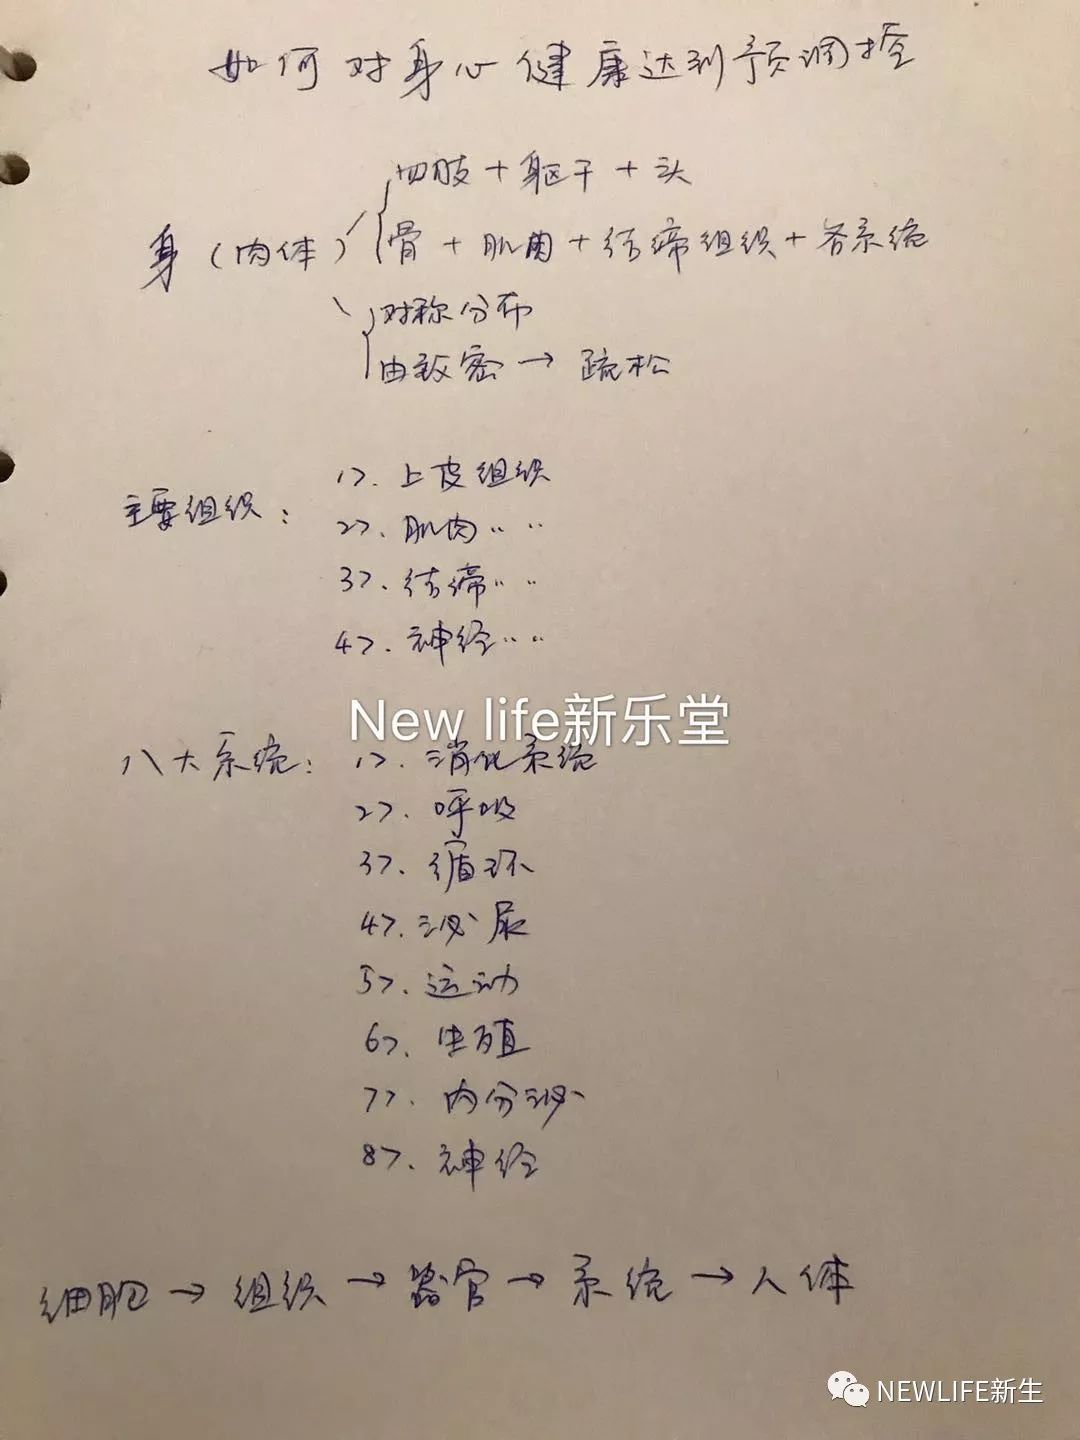 如何对身心健康达到预调控
四肢 + 躯干 + 头
身（肉体） 骨 + 肌肉 + 结缔组织 + 各系统
对称分布
由致密 → 疏松
1>. 上皮组织
主要组织：
2>. 肌肉〃 〃
3>. 结缔〃 〃
4>. 神经〃 〃
New life新乐堂
八大系统： 1>. 消化系统
2>. 呼吸
3>. 循环
4>. 泌尿
5>. 运动
6>. 生殖
7>. 内分泌
8>. 神经
细胞 → 组织 → 器官 → 系统 → 人体
NEWLIFE新生